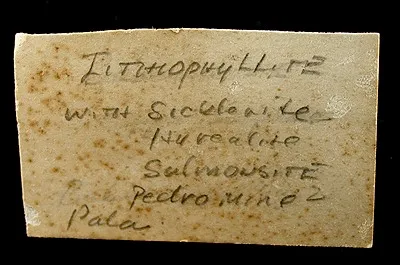 LITHOPHYLLITE
WITH Sicklerite
Hurealite
SALMONSITE
Pedro Mine
Pala